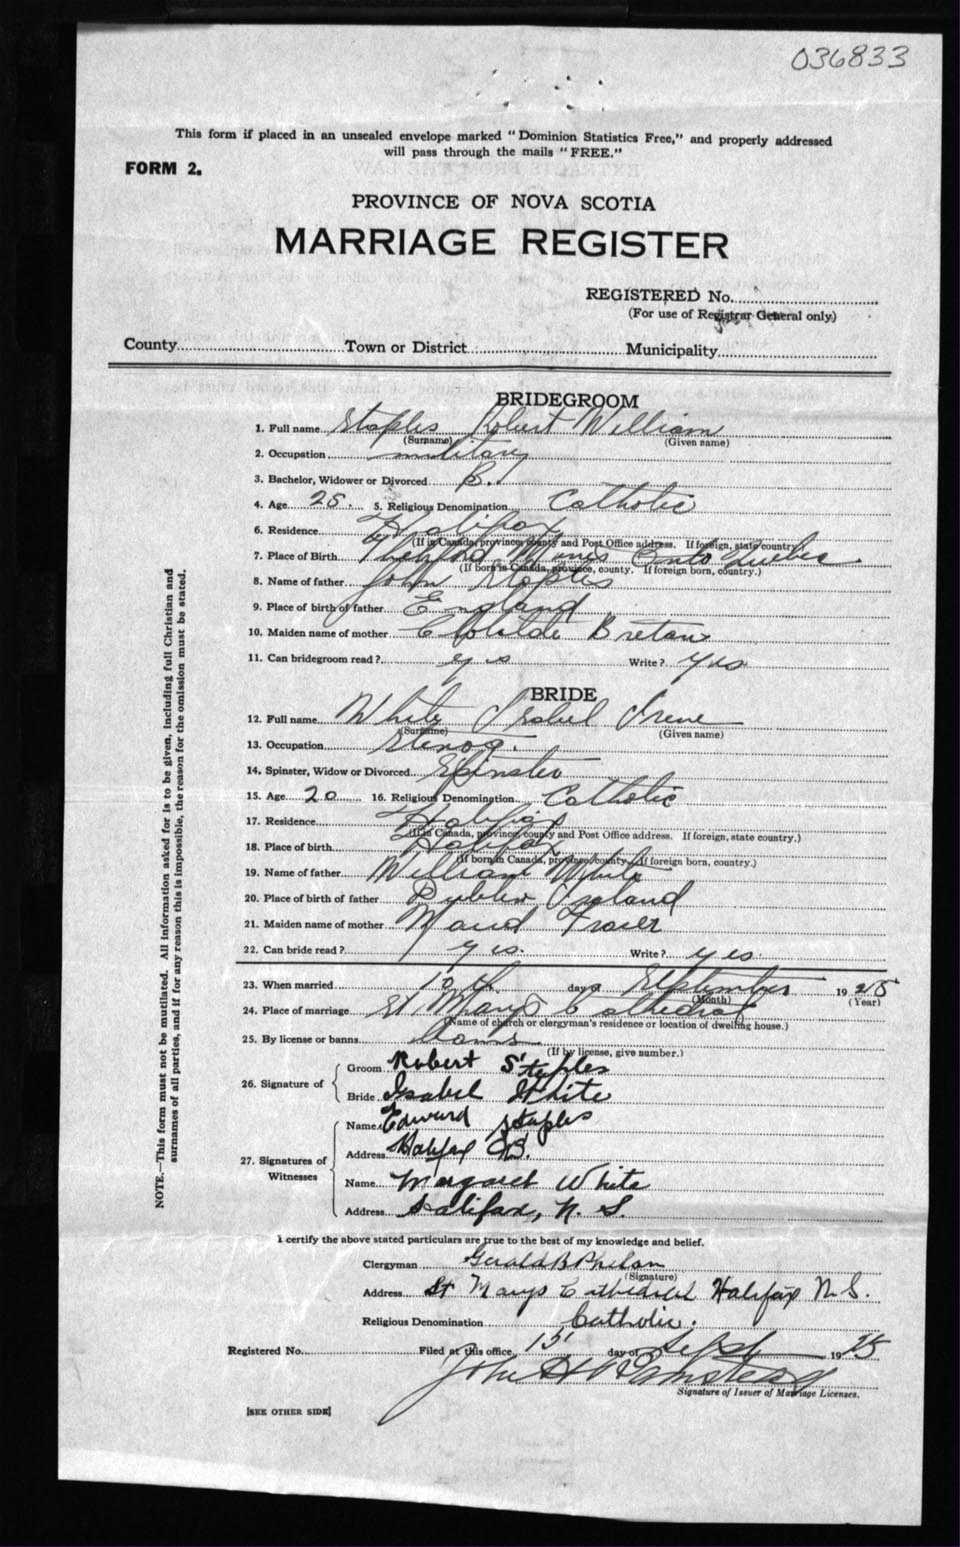 036833
This form if placed in an unsealed envelope marked "Dominion Statistics Free," and properly addressed
will pass through the mails "FREE."
FORM 2.
PROVINCE OF NOVA SCOTIA
MARRIAGE REGISTER
REGISTERED No.
(For use of Registrar General only)
County Town or District Municipality
BRIDEGROOM
1. Full name Staples Robert William
(Surname) (Given name)
2. Occupation military
3. Bachelor, Widower or Divorced B.
4. Age 25. 5. Religious Denomination Catholic
6. Residence Halifax
(If in Canada, province, county and Post Office address. If foreign, state country)
7. Place of Birth Thetford Mines Onto Quebec
(If born in Canada, province, county. If foreign born, country.)
8. Name of father John Staples
9. Place of birth of father England
10. Maiden name of mother Breton
11. Can bridegroom read? yes Write? yes
BRIDE
12. Full name White Isabel Irene
(Surname) (Given name)
13. Occupation Stenog.
14. Spinster, Widow or Divorced Spinster
15. Age 20 16. Religious Denomination Catholic
17. Residence Halifax
(If in Canada, province, county and Post Office address. If foreign, state country.)
18. Place of birth Halifax
(If born in Canada, province, county. If foreign born, country.)
19. Name of father William White
20. Place of birth of father Dublin Ireland
21. Maiden name of mother Maud
22. Can bride read? yes. Write? yes.
23. When married 10th day of September 1925
(Month) (Year)
24. Place of marriage St Marys Cathedral
(Name of church or clergyman's residence or location of dwelling house.)
25. By license or banns Banns
(If by license, give number.)
26. Signature of
Groom Robert Staples
Bride Isabel White
27. Signatures of Witnesses
Name Edward Staples
Address Halifax N.S.
Name Margaret White
Address Halifax, N. S.
I certify the above stated particulars are true to the best of my knowledge and belief.
Clergyman Gerald B Phelan
(Signature)
Address St Marys Cathedral Halifax N.S.
Religious Denomination Catholic.
Registered No. Filed at this office 15 day of Sept 1925
John H
Signature of Issuer of Marriage Licenses.
[SEE OTHER SIDE]
NOTE.—This form must not be mutilated. All information asked for is to be given, including full Christian and
surnames of all parties, and if for any reason this is impossible, the reason for the omission must be stated.